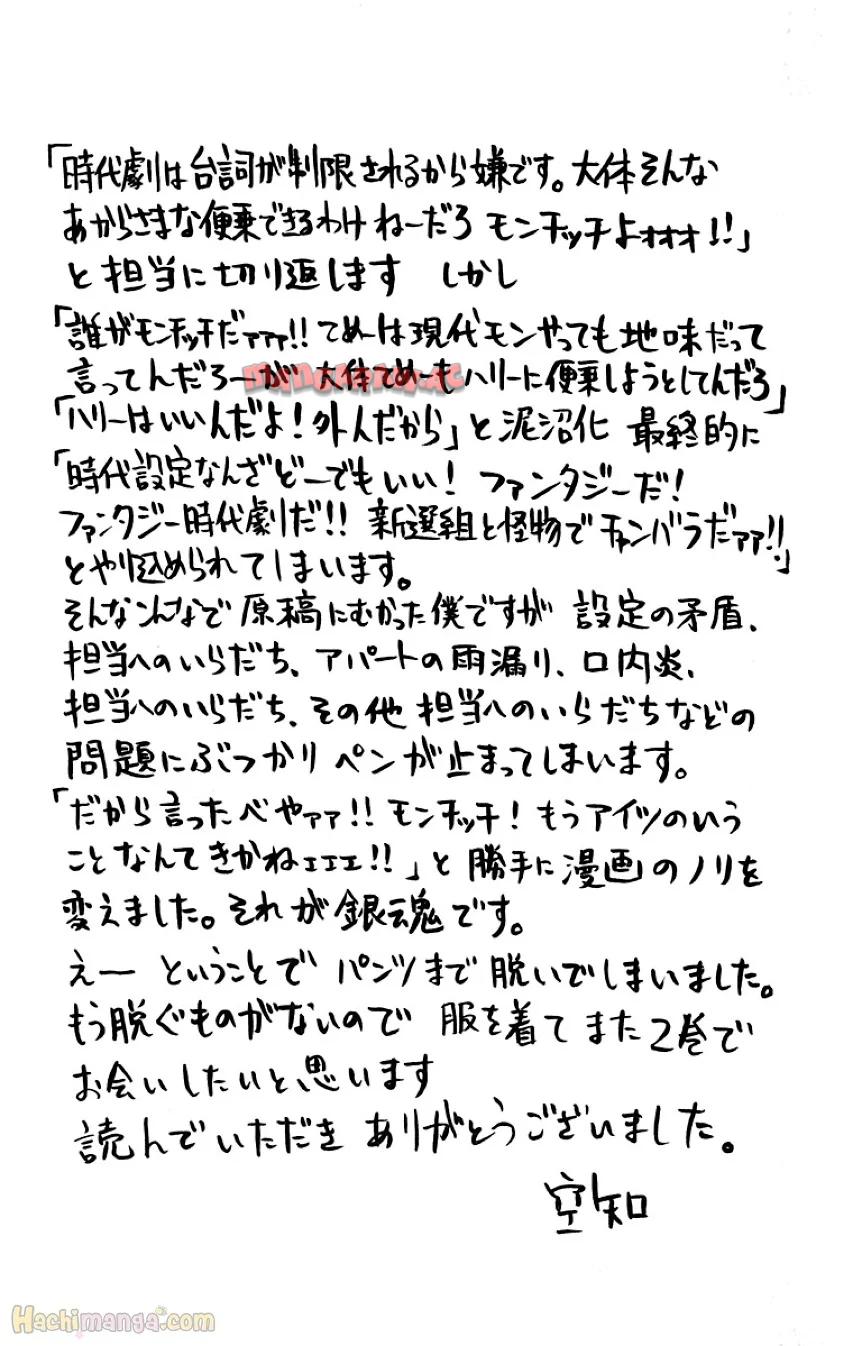 「時代劇は台詞が制限されるから嫌です。大体そんな
あからさまな便乗できるわけねーだろ モンチッチよォォォ!!」
と担当に切り返します しかし
「誰がモンチッチだァァァ!! てめーは現代モンやっても地味だって
言ってんだろーが 大体てめーもハリーに便乗しようとしてんだろ」
「ハリーはいいんだよ!外人だから」と泥沼化 最終的に
「時代設定なんざどーでもいい! ファンタジーだ!
ファンタジー時代劇だ!! 新選組と怪物でチャンバラだァァ!!」
とやり込められてしまいます。
そんなこんなで原稿にむかった僕ですが 設定の矛盾、
担当へのいらだち、アパートの雨漏り、口内炎、
担当へのいらだち、その他担当へのいらだちなどの
問題にぶつかりペンが止まってしまいます。
「だから言ったべやァァ!! モンチッチ! もうアイツのいう
ことなんてきかねェェェ!!」と勝手に漫画のノリを
変えました。それが銀魂です。
えー ということで パンツまで脱いでしまいました。
もう脱ぐものがないので 服を着てまた2巻で
お会いしたいと思います
読んでいただき ありがとうございました。
空知
Hachimanga.com